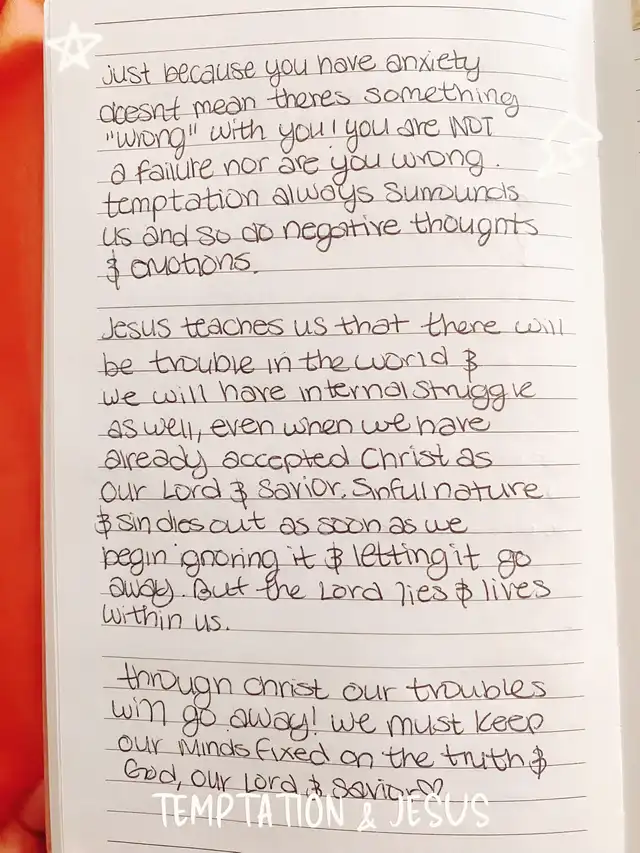 just because you have anxiety
doesnt mean theres something
"wrong" with you! you are NOT
a failure nor are you wrong.
temptation always surrounds
us and so do negative thoughts
& emotions.
Jesus teaches us that there will
be trouble in the world &
we will have internal struggle
as well, even when we have
already accepted Christ as
our Lord & Savior. Sinful nature
& sin dies out as soon as we
begin ignoring it & letting it go
away. But the Lord lies & lives
within us.
through Christ our troubles
will go away! we must keep
our minds fixed on the truth &
God, our Lord & Savior♡
TEMPTATION & JESUS